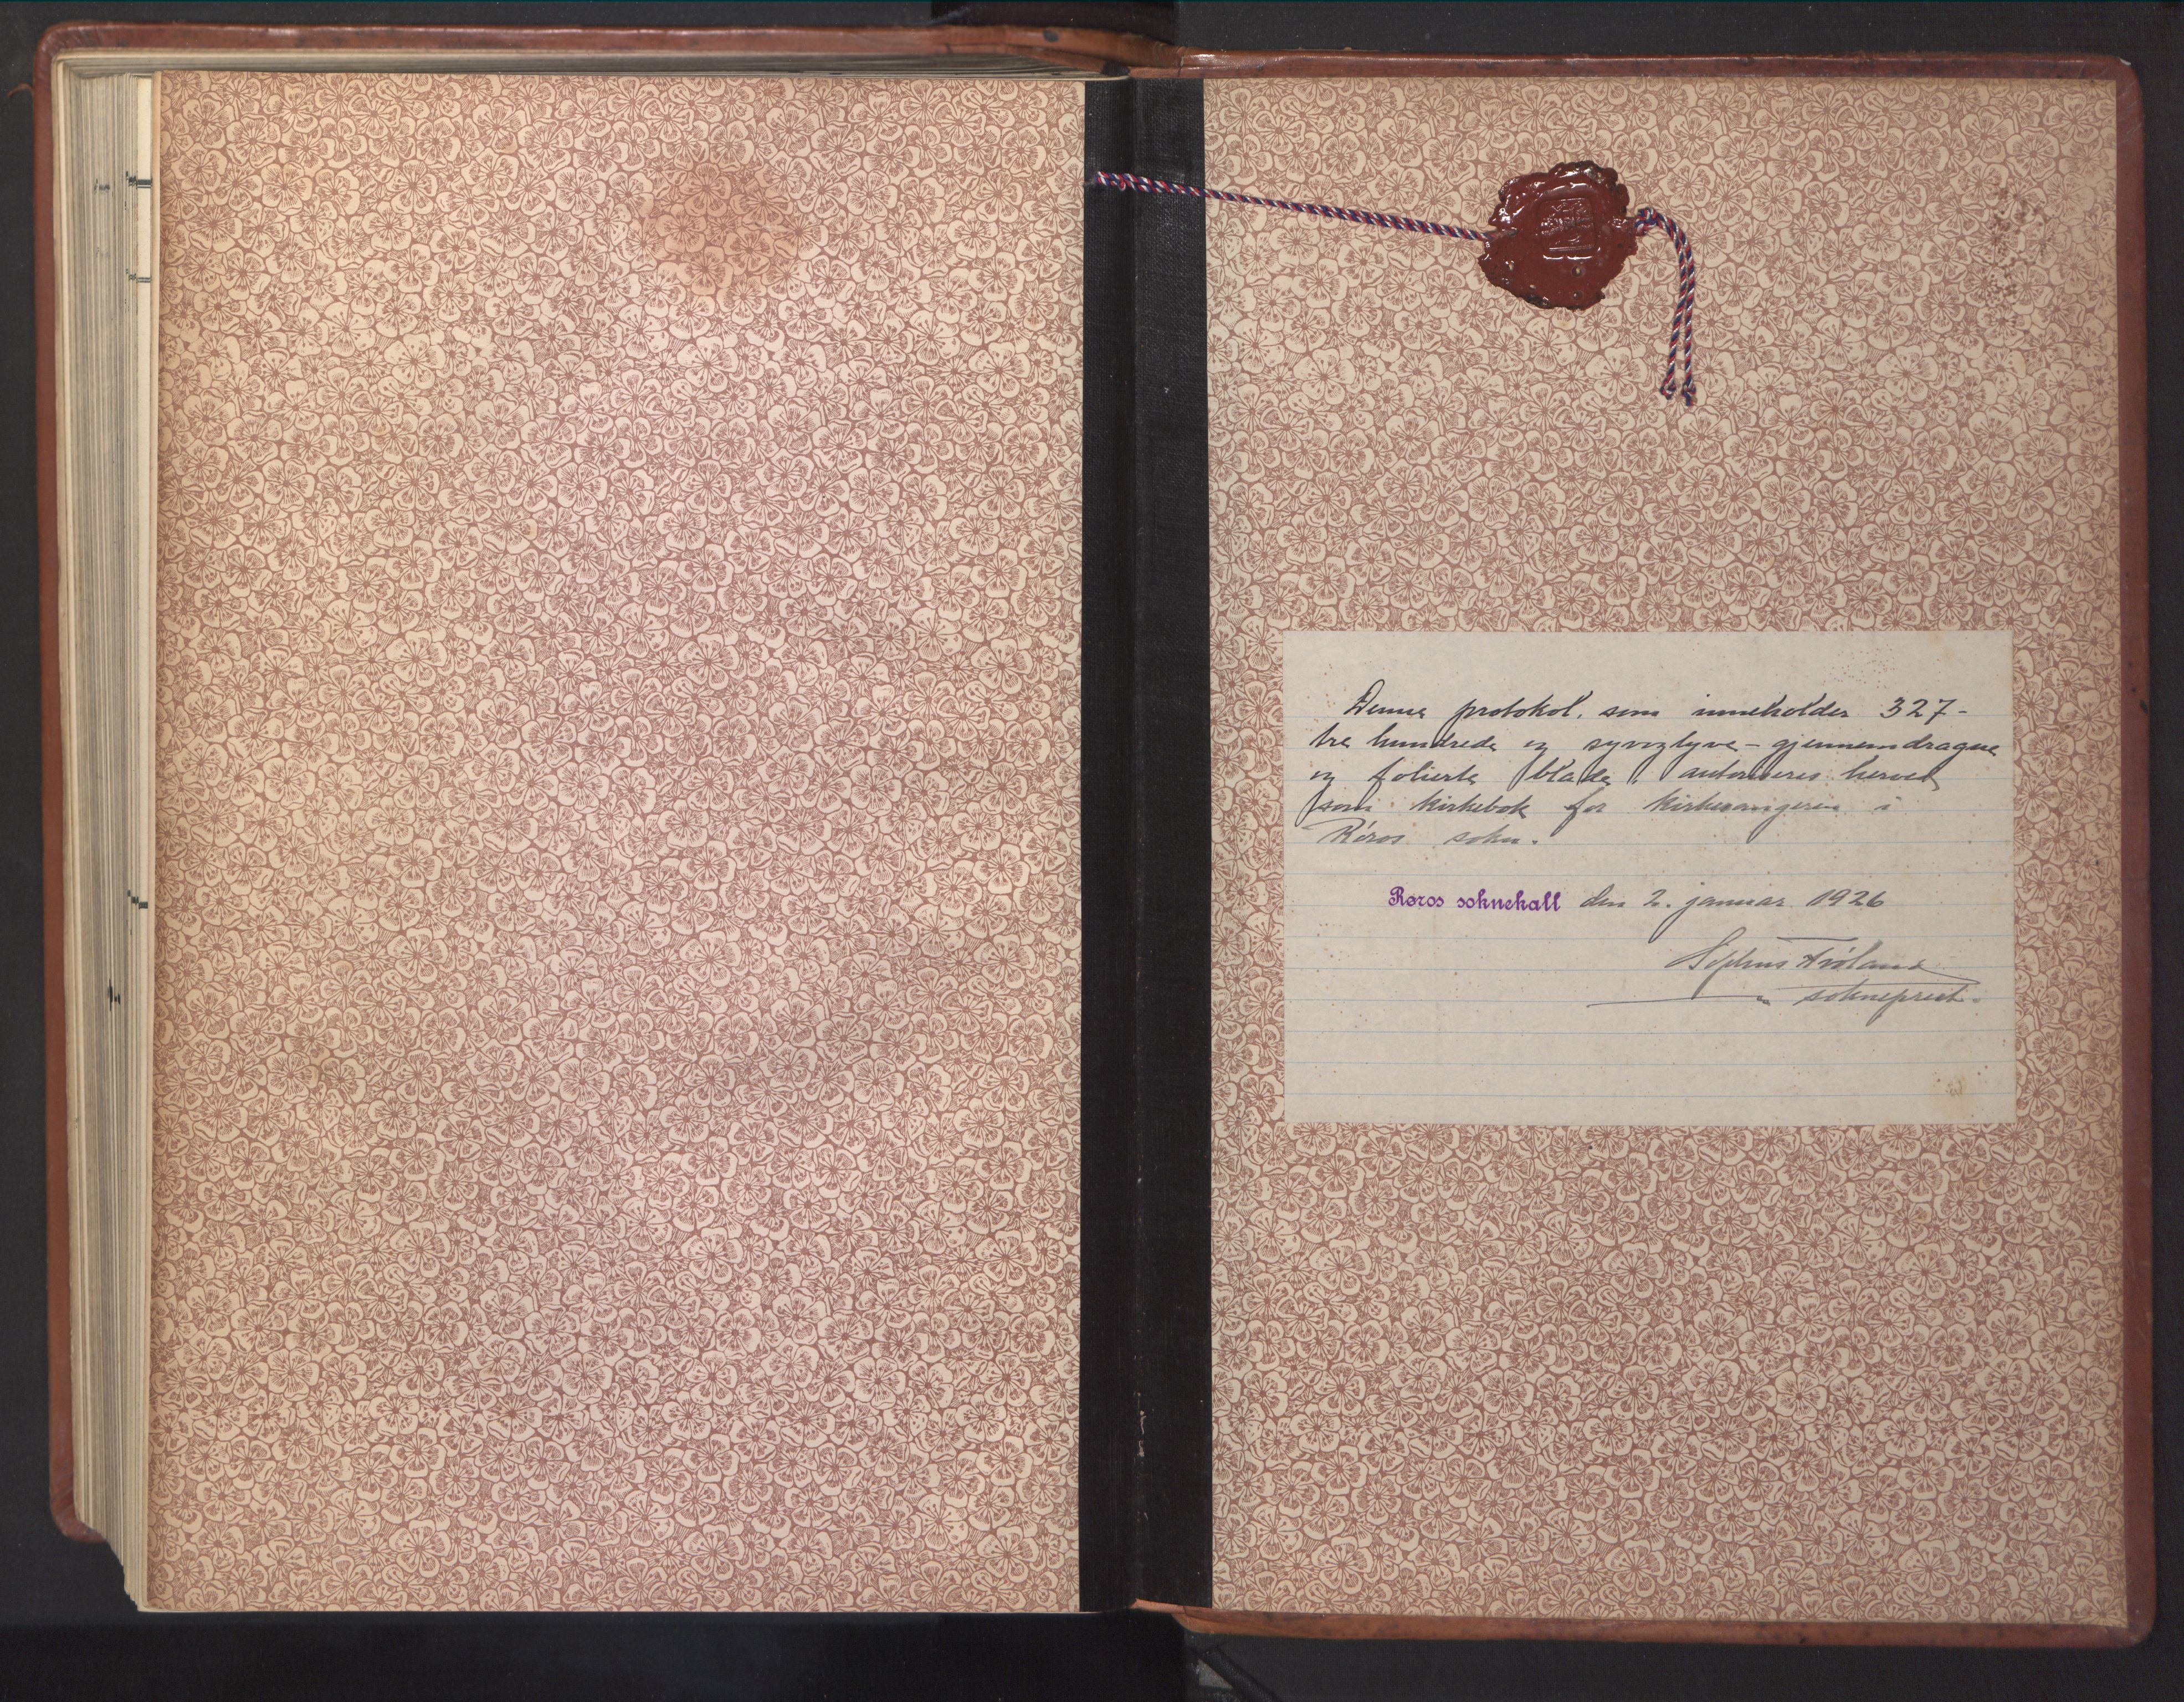 Denne protokol, som inneholder 327-
tre hundrede og syvogtyve - gjennemdragne
og folierte blade, autoriseres herved
som kirkebok for kirkesangeren i
Røros sokn.
Røros soknekall den 2. januar 1926
Sophus
sokneprest.